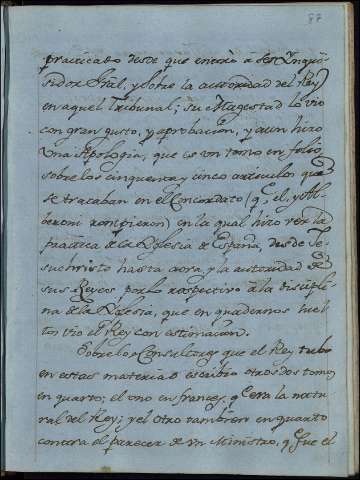 87
practicado desde que entrò à ser Inqui-
sidor Gral, y sobre la autoridad del Rey
en aquel Tribunal; su Magestad lo vio
con gran gusto, y aprobacion, y aun hizo
una Apologia, que es un tomo en folio
sobre los cinquenta y cinco articulos que
se trataban en el Concordato (q. el, y Al-
beroni rompieron) en la qual hizo ver la
practica de la Iglesia de España, desde Je-
suchristo hasta aora, y la autoridad de
sus Reyes por lo respectivo à la discipli-
na de la Iglesia, que en quadernos suel-
tos vio el Rey con estimacion.
Sobre lo consultar que el Rey tubo
en estas materias escribio otros dos tomos
en quarto; el uno en frances, q era la
ral del Rey; y el otro tambien en quarto
contra el parecer de un Ministro, q fue el